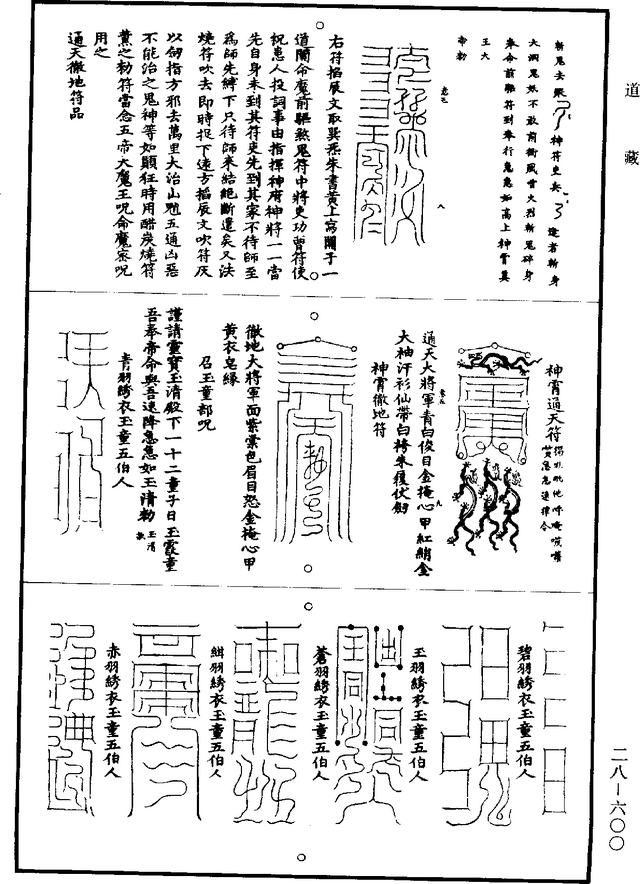 道藏
斬鬼去厭 神符吏兵 違者斬身
大洞鬼妖不敢前衝風雷火烈斬鬼碎身
奉命前驅符到奉行急急如高上神霄真
王大
帝勑
卷七 八
右符搯辰文取巽炁朱書黃上寫關子一
道關命魔前驅煞鬼符中將吏功曹符使
祝患人投詞事由指揮神府神將一一當
先自身未到其符吏先到其家不待師至
為師先縛下只待師來結絕斷遣矣又法
燒符吹去即時捉下遠方搯辰文吹符灰
以劒指方邪去萬里大治山魈五通凶惡
不能治之鬼神等如顛狂時用醋炭燒符
薰之勑符當念五帝大魔王呪命魔密呪
用之
通天徹地符品
神霄通天符
通天大將軍青白俊目金掩心甲紅綃金
卷五 九
大袖汗衫仙帶白袴朱履伏劒
神霄徹地符
徹地大將軍面紫棠色眉目怒金掩心甲
黃衣皂緣
召玉童都呪
謹請靈寶玉清殿下一十二童子日玉霞童
吾奉帝命與吾速降急急如玉清勑 玉清
青羽綉衣玉童五伯人
碧羽綉衣玉童五伯人
玉羽綉衣玉童五伯人
蒼羽綉衣玉童五伯人
紺羽綉衣玉童五伯人
赤羽綉衣玉童五伯人
二八—六〇〇